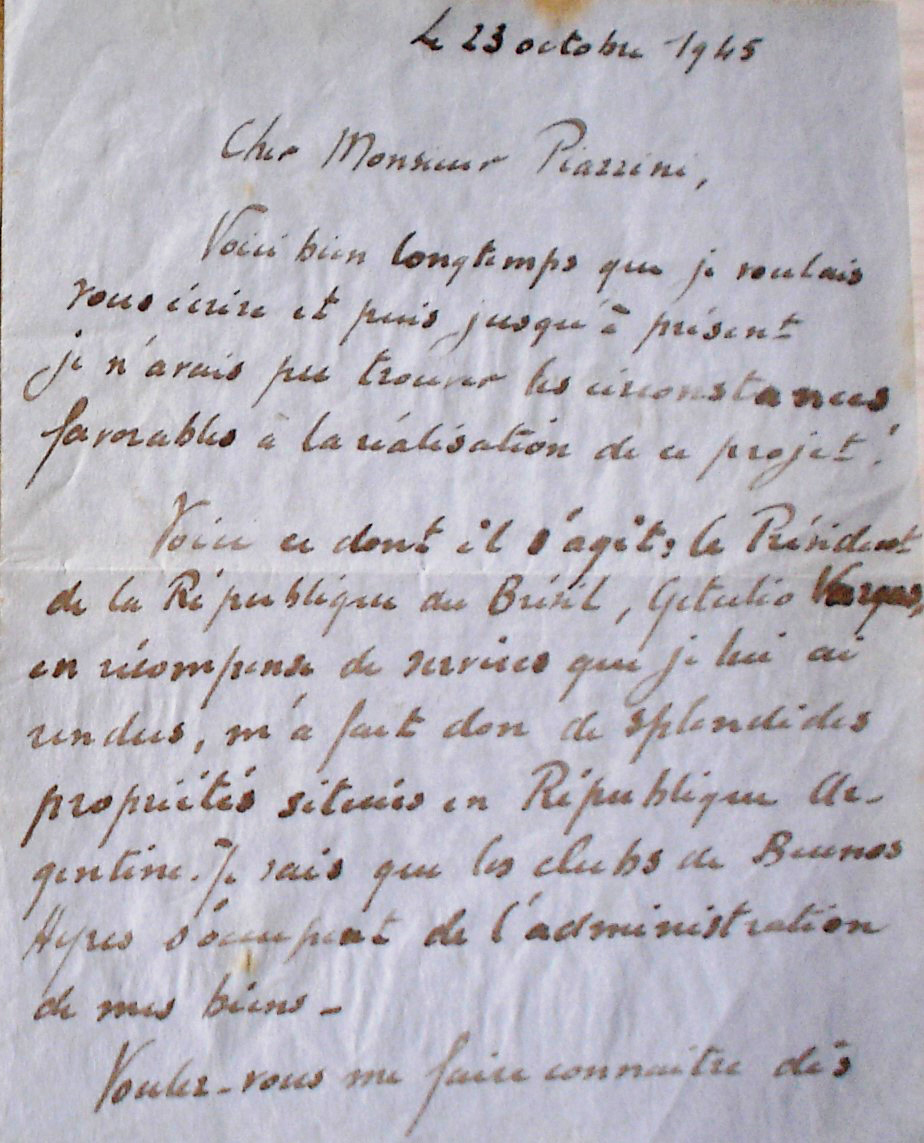 Le 23 octobre 1945
Cher Monsieur Piazzini,
Voici bien longtemps que je voulais
vous écrire et puis jusqu'à présent
je n'avais pu trouver les circonstances
favorables à la réalisation de ce projet !
Voici ce dont il s'agit, le Président
de la République du Brésil, Getulio Vargas,
en récompense de services que je lui ai
rendus, m'a fait don de splendides
propriétés situées en République Ar-
gentine. Je sais que les clubs de Buenos
Ayres s'occupent de l'administration
de mes biens -
Voulez-vous me faire connaître dès